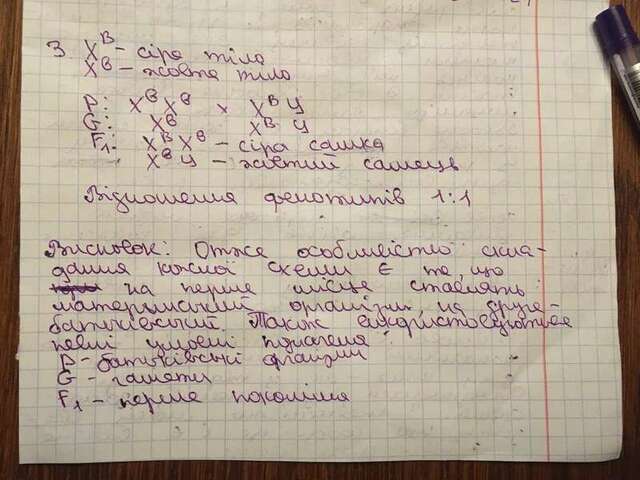 3. X^B – сіре тіло
X^в – жовте тіло
P: X^в X^в × X^B У
G: X^в X^B У
F₁: X^B X^в – сіра самка
X^в У – жовтий самець
Відношення фенотипів 1:1
Висновок: Отже особливістю скла-
дання кожної схеми є те, що
на перше місце ставлять
материнський організм, на друге –
батьківський. Також використовуються
певні умовні позначення
P – батьківські організми
G – гамети
F₁ – перше покоління